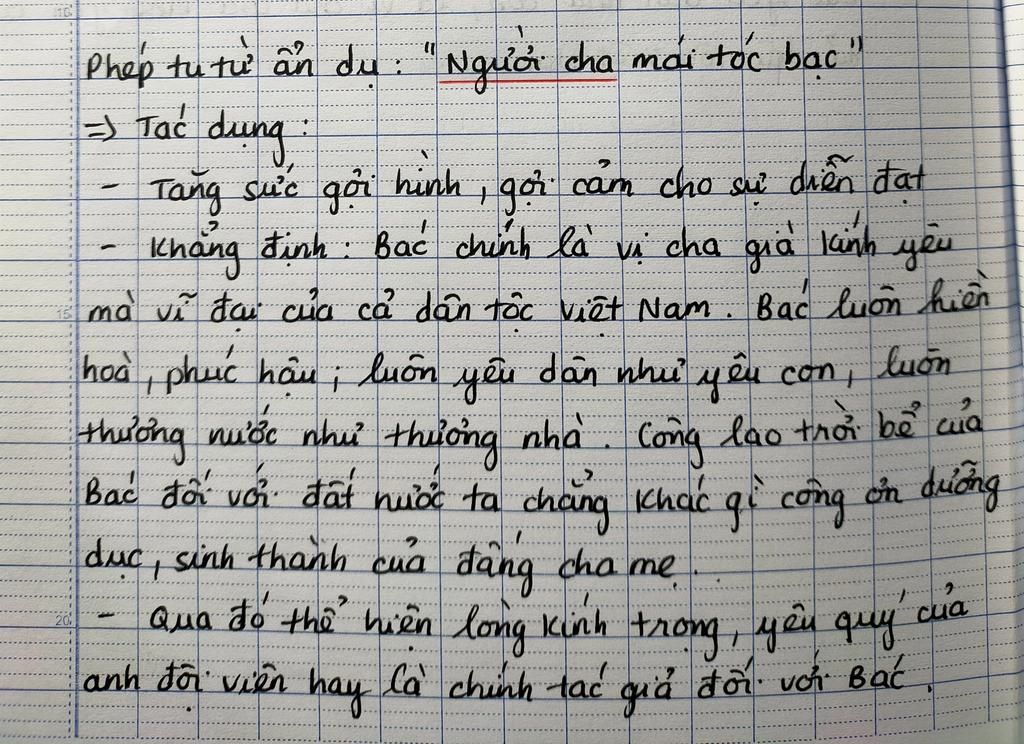 Phép tu từ ẩn dụ : "Người cha mái tóc bạc"
=> Tác dụng :
- Tăng sức gợi hình, gợi cảm cho sự diễn đạt
- Khẳng định : Bác chính là vị cha già kính yêu
mà vĩ đại của cả dân tộc Việt Nam. Bác luôn hiền
hoà, phúc hậu ; luôn yêu dân như yêu con, luôn
thương nước như thương nhà. Công lao trời bể của
Bác đối với đất nước ta chẳng khác gì công ơn dưỡng
dục, sinh thành của đấng cha mẹ.
- Qua đó thể hiện lòng kính trọng, yêu quý của
anh đội viên hay là chính tác giả đối với Bác.